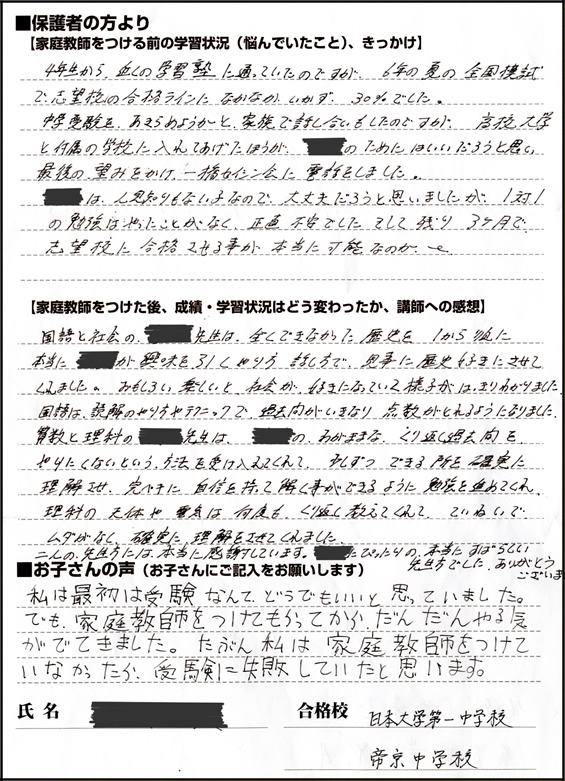 ■保護者の方より
【家庭教師をつける前の学習状況（悩んでいたこと）、きっかけ】
4年生から、近くの学習塾に通っていたのですが、6年の夏の全国模試
で志望校の合格ラインになかなかいかず、30%でした。
中学受験を、あきらめようかと、家族で話し合いもしたのですが、高校、大学
と付属の学校に入れてあげたほうが、のためにはいいだろうと思い
最後の望みをかけ、一橋セイシン会に電話をしました。
は、人見知りもない子なので、大丈夫だろうと思いましたが、1対1
の勉強はやったことがなく、正直不安でした。そして残り3ヶ月で、
志望校に合格させる事が本当に可能なのか、と
【家庭教師をつけた後、成績・学習状況はどう変わったか、講師への感想】
国語と社会の、先生は、全くできなかった歴史を1から順に
本当にが興味を引くやり方、話し方で、見事に歴史好きにさせて
くれました。おもしろい楽しいと、社会が、好きになっていく様子がはっきりわかりました。
国語は、読解のやり方やテクニックで、過去問がいきなり点数がとれるようになりました。
算数と理科の先生は、の、わがままな、くり返し過去問を、
やりたくないという方法を受け入れてくれて、少しずつできる所を確実に
理解させ、完ペキに自信を持って解く事ができるように勉強を進めてくれ、
理科の天体や電気は何度も、くり返し教えてくれて、ていねいで、
ムダがなく、確実に理解をさせてくれました。
二人の先生方には、本当に感謝しています。にぴったりの、本当にすばらしい
先生方でした。ありがとう
ございま
■お子さんの声（お子さんにご記入をお願いします）
私は最初は受験なんて、どうでもいいと思っていました。
でも、家庭教師をつけてもらってから、だんだんやる気
がでてきました。たぶん私は家庭教師をつけて
いなかったら、受験に失敗していたと思います。
氏名 合格校 日本大学第一中学校
帝京中学校